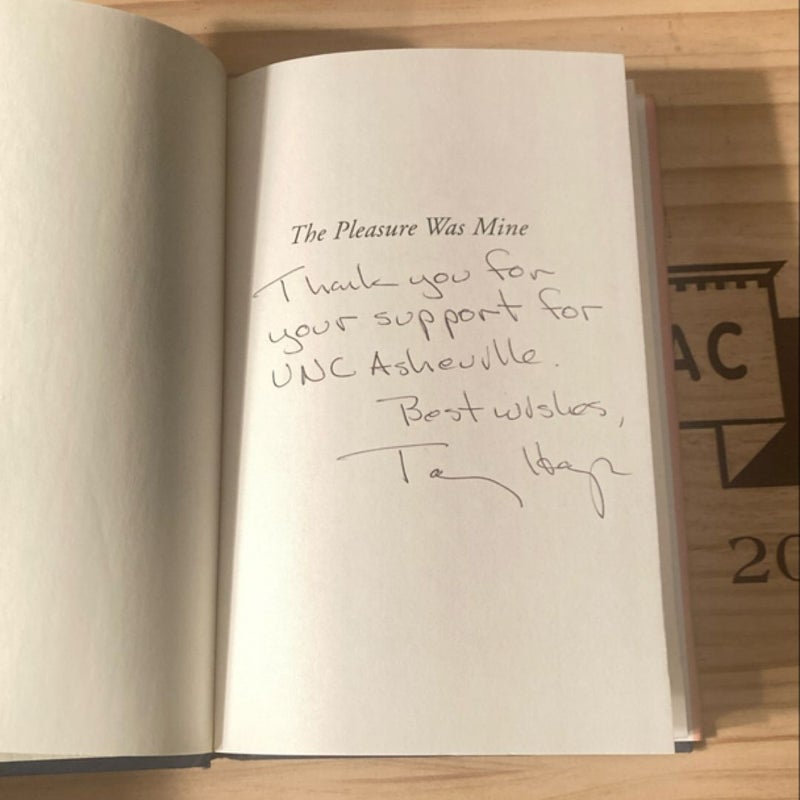 The Pleasure Was Mine
Thank you for
your support for
UNC Asheville.
Best wishes,
AC
20